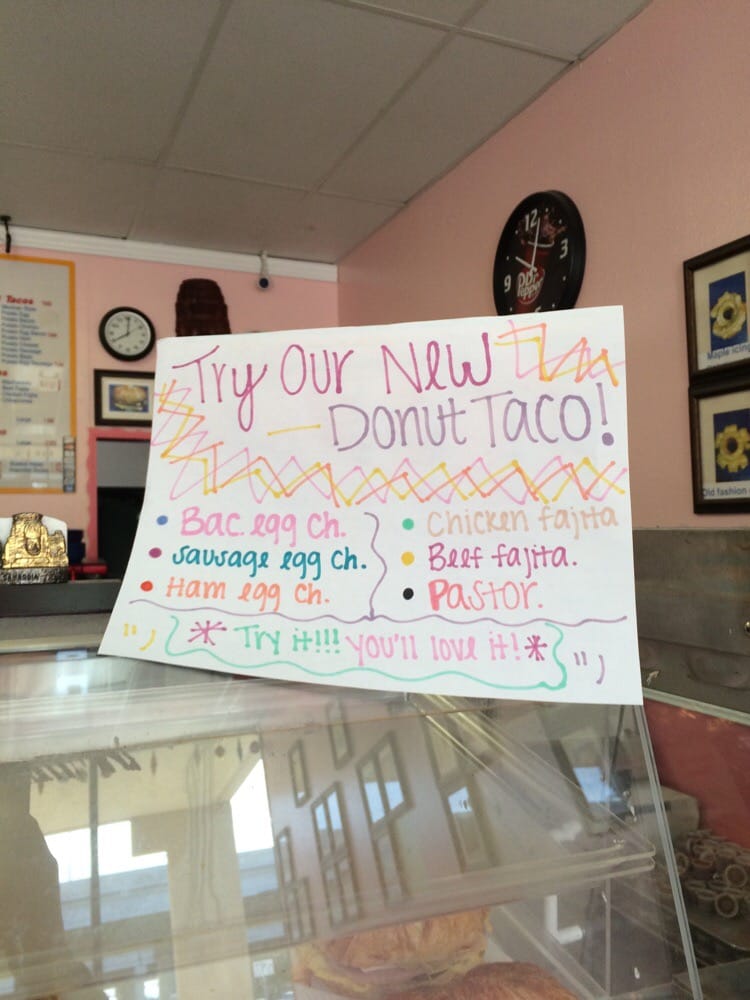 Try Our New
— Donut Taco!
• Bac. egg ch.
• sausage egg ch.
• Ham egg ch.
• Chicken fajita
• Beef fajita.
• Pastor.
* Try it!!! you'll love it! *
12
3
9
Dr Pepper
Tacos
Maple icing
Old fashion